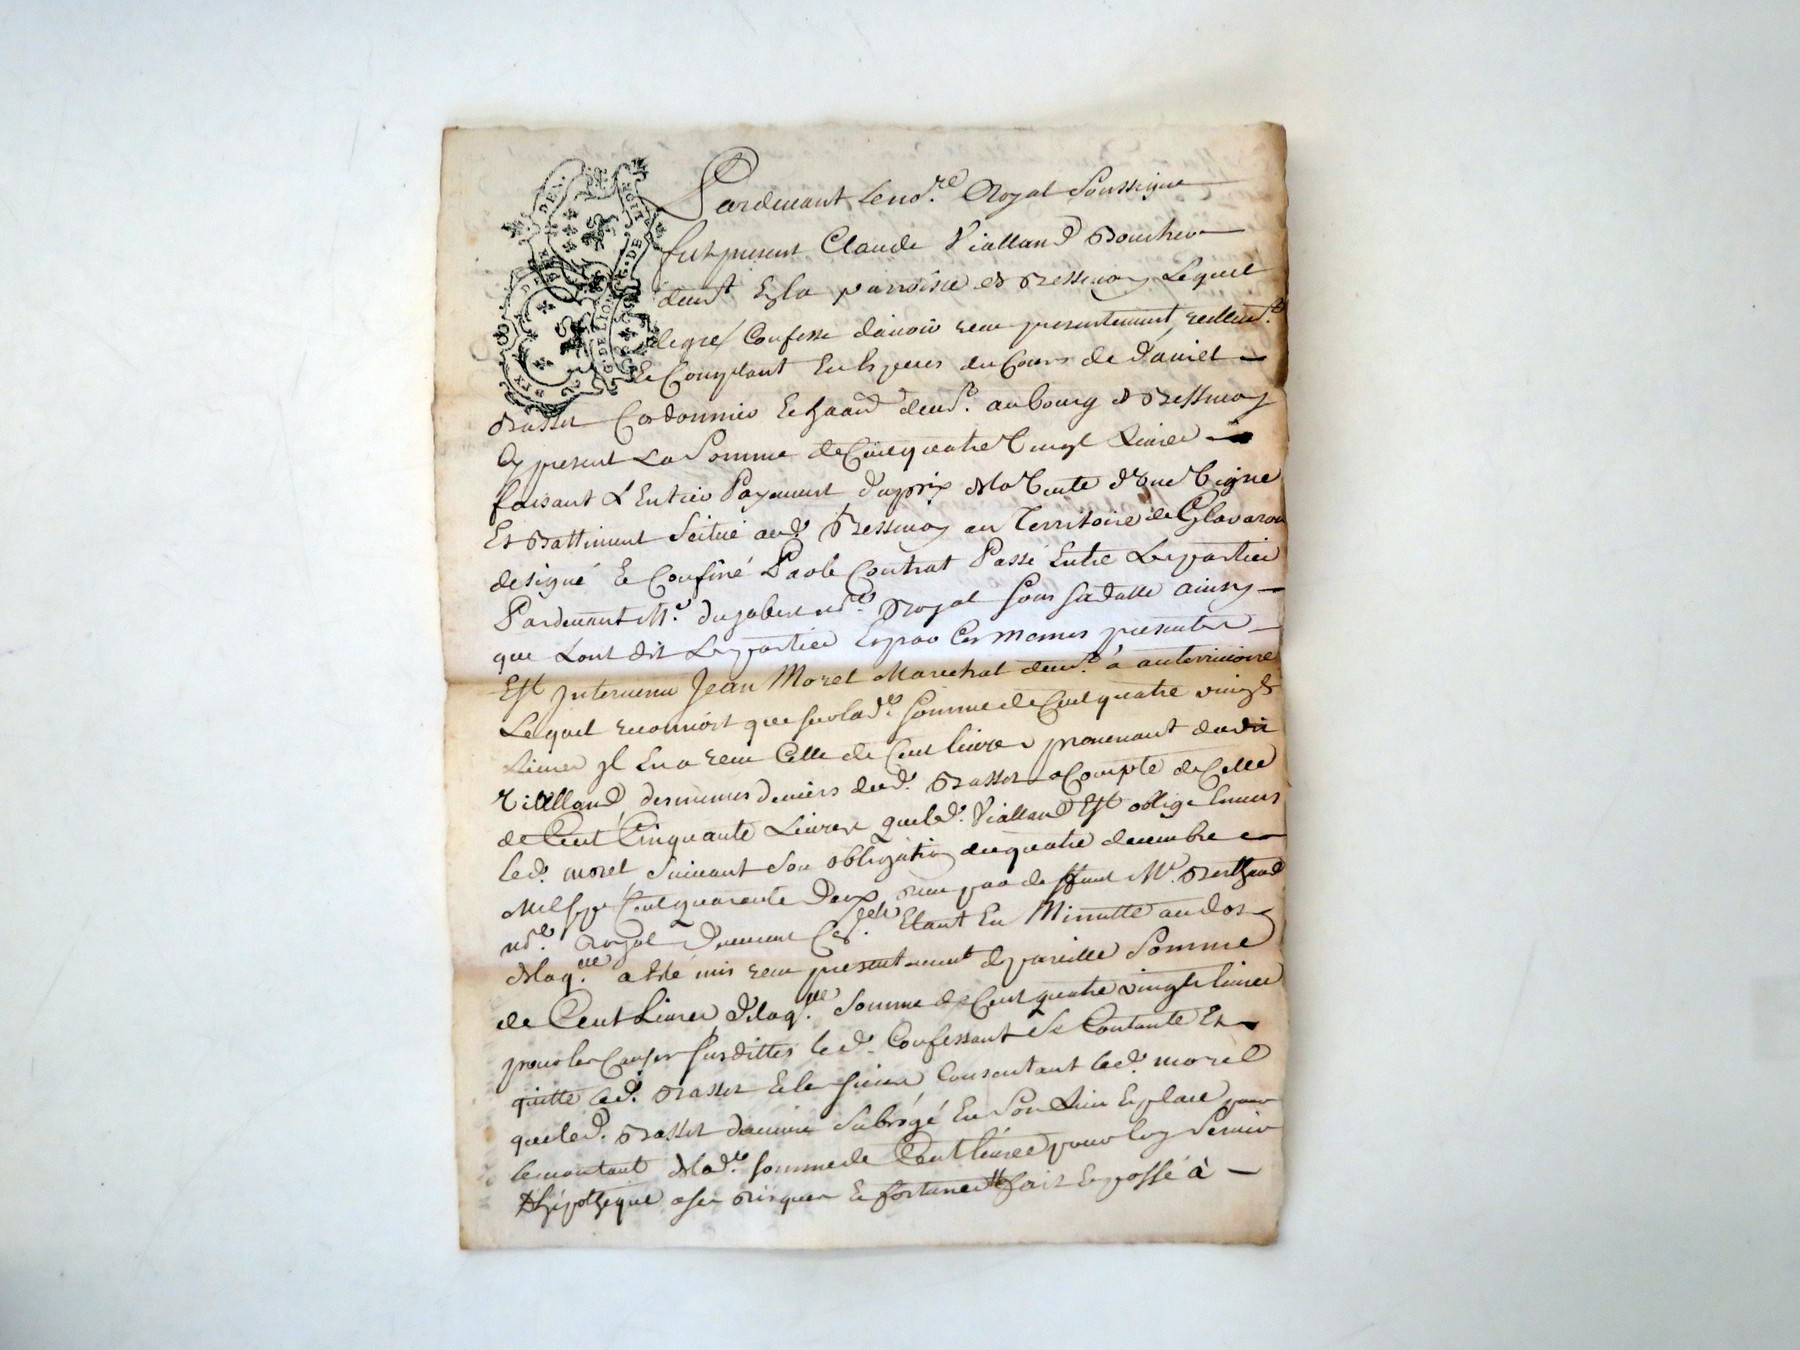 DE LION
Pardevant le no.re Royal Soussigné
fut present Claude Vialland Boucher
demt. En la parroisse de Bessenay Lequel
de gré Confesse d'avoir receu presentement, reellemt.
Et Comptant En Especes du Cours de Daniel
Basset Cordonnier demt. au bourg de Bessenay
Cy present La Somme de Cent quatre Vingt Livres
faisant L'Entier Payement du prix de la Vente d'Une Vigne
Et Battiment Scitué aud. Bessenay au Territoire de
designé Et Confiné Par le Contrat Passé Entre Les parties
Pardevant Me. Dujabert no.re Royal Sous Sa datte ainsy
que L'ont dit Les parties Et par Ces Memes presentes
Est Intervenu Jean Morel Marechal demt. à
Lequel reconnoit que sur lad.e Somme de Cent quatre vingt
Livres Il En a receu Celle de Cent livres provenant dudit
Vialland, des mêmes deniers dud. Basset a Compte de Celle
de Cent Cinquante Livres que led. Vialland Est obligé Envers
led. morel Suivant Son obligation du quatre decembre
Mil Sept Cent quarante Deux receu par deffunt Me. Berthaud
no.re Royal Duement Etant En Minutte au dos
de laq.lle a Eté mis receu presentement de pareille Somme
de Cent Livres De laq.lle Somme de Cent quatre vingts livres
pour les Causes Susdittes led. Confessant Se Contante Et
quitte led. Basset Et les Siens Consentant led. morel
que led. Basset demeure Subrogé En Son Lieu Et place pour
le montant de lad.e Somme de Cent livres pour luy Servir
D'hipotheque a Ses risques Et fortunes fait Et passé à